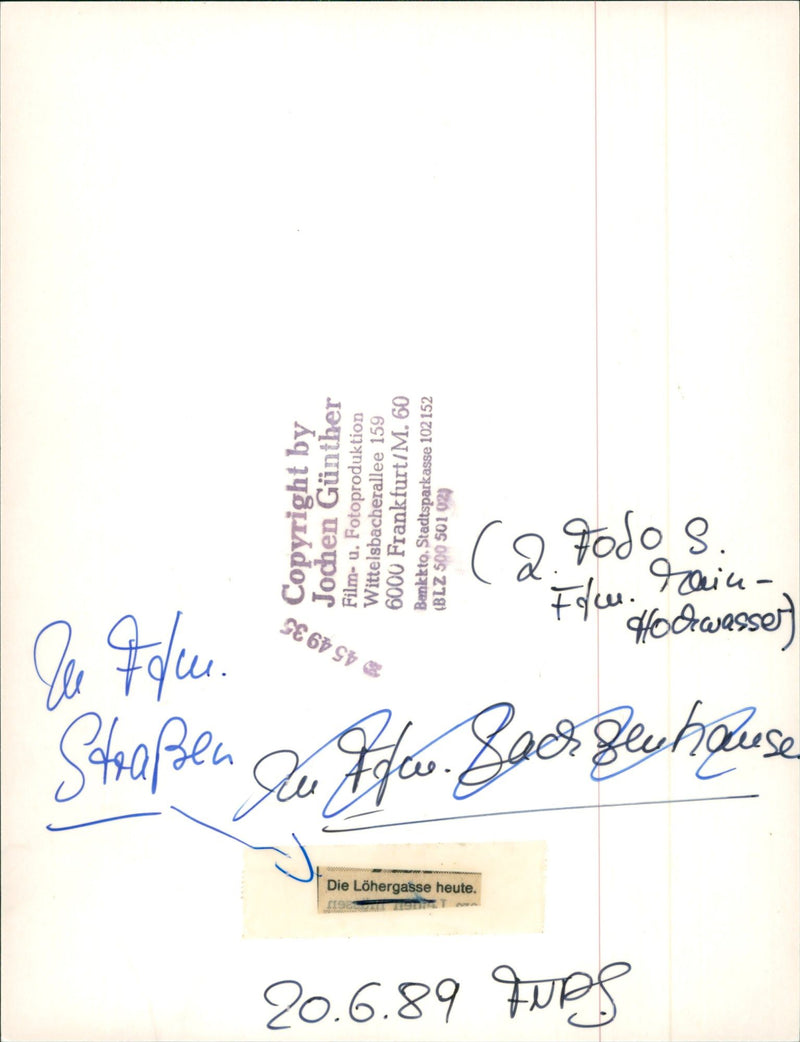 Copyright by
Jochen Günther
Film- u. Fotoproduktion
Wittelsbacherallee 159
6000 Frankfurt/M. 60
Bankkto. Stadtsparkasse 102152
(BLZ 500 501 02)
45 49 35
(2. Foto S.
Ffm. Main-
Hochwasser)
In Ffm.
Straßen
In Ffm. Sachsenhausen
Die Löhergasse heute.
20.6.89